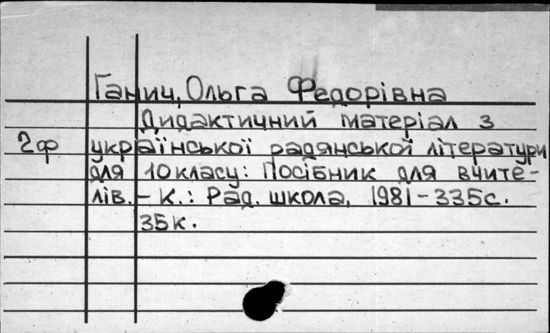 Ганич, Ольга Федорівна
Дидактичний матеріал з
2ф української радянської літератури
для 10 класу: Посібник для вчите-
лів. – К.: Рад. школа, 1981 – 335с.
35к.